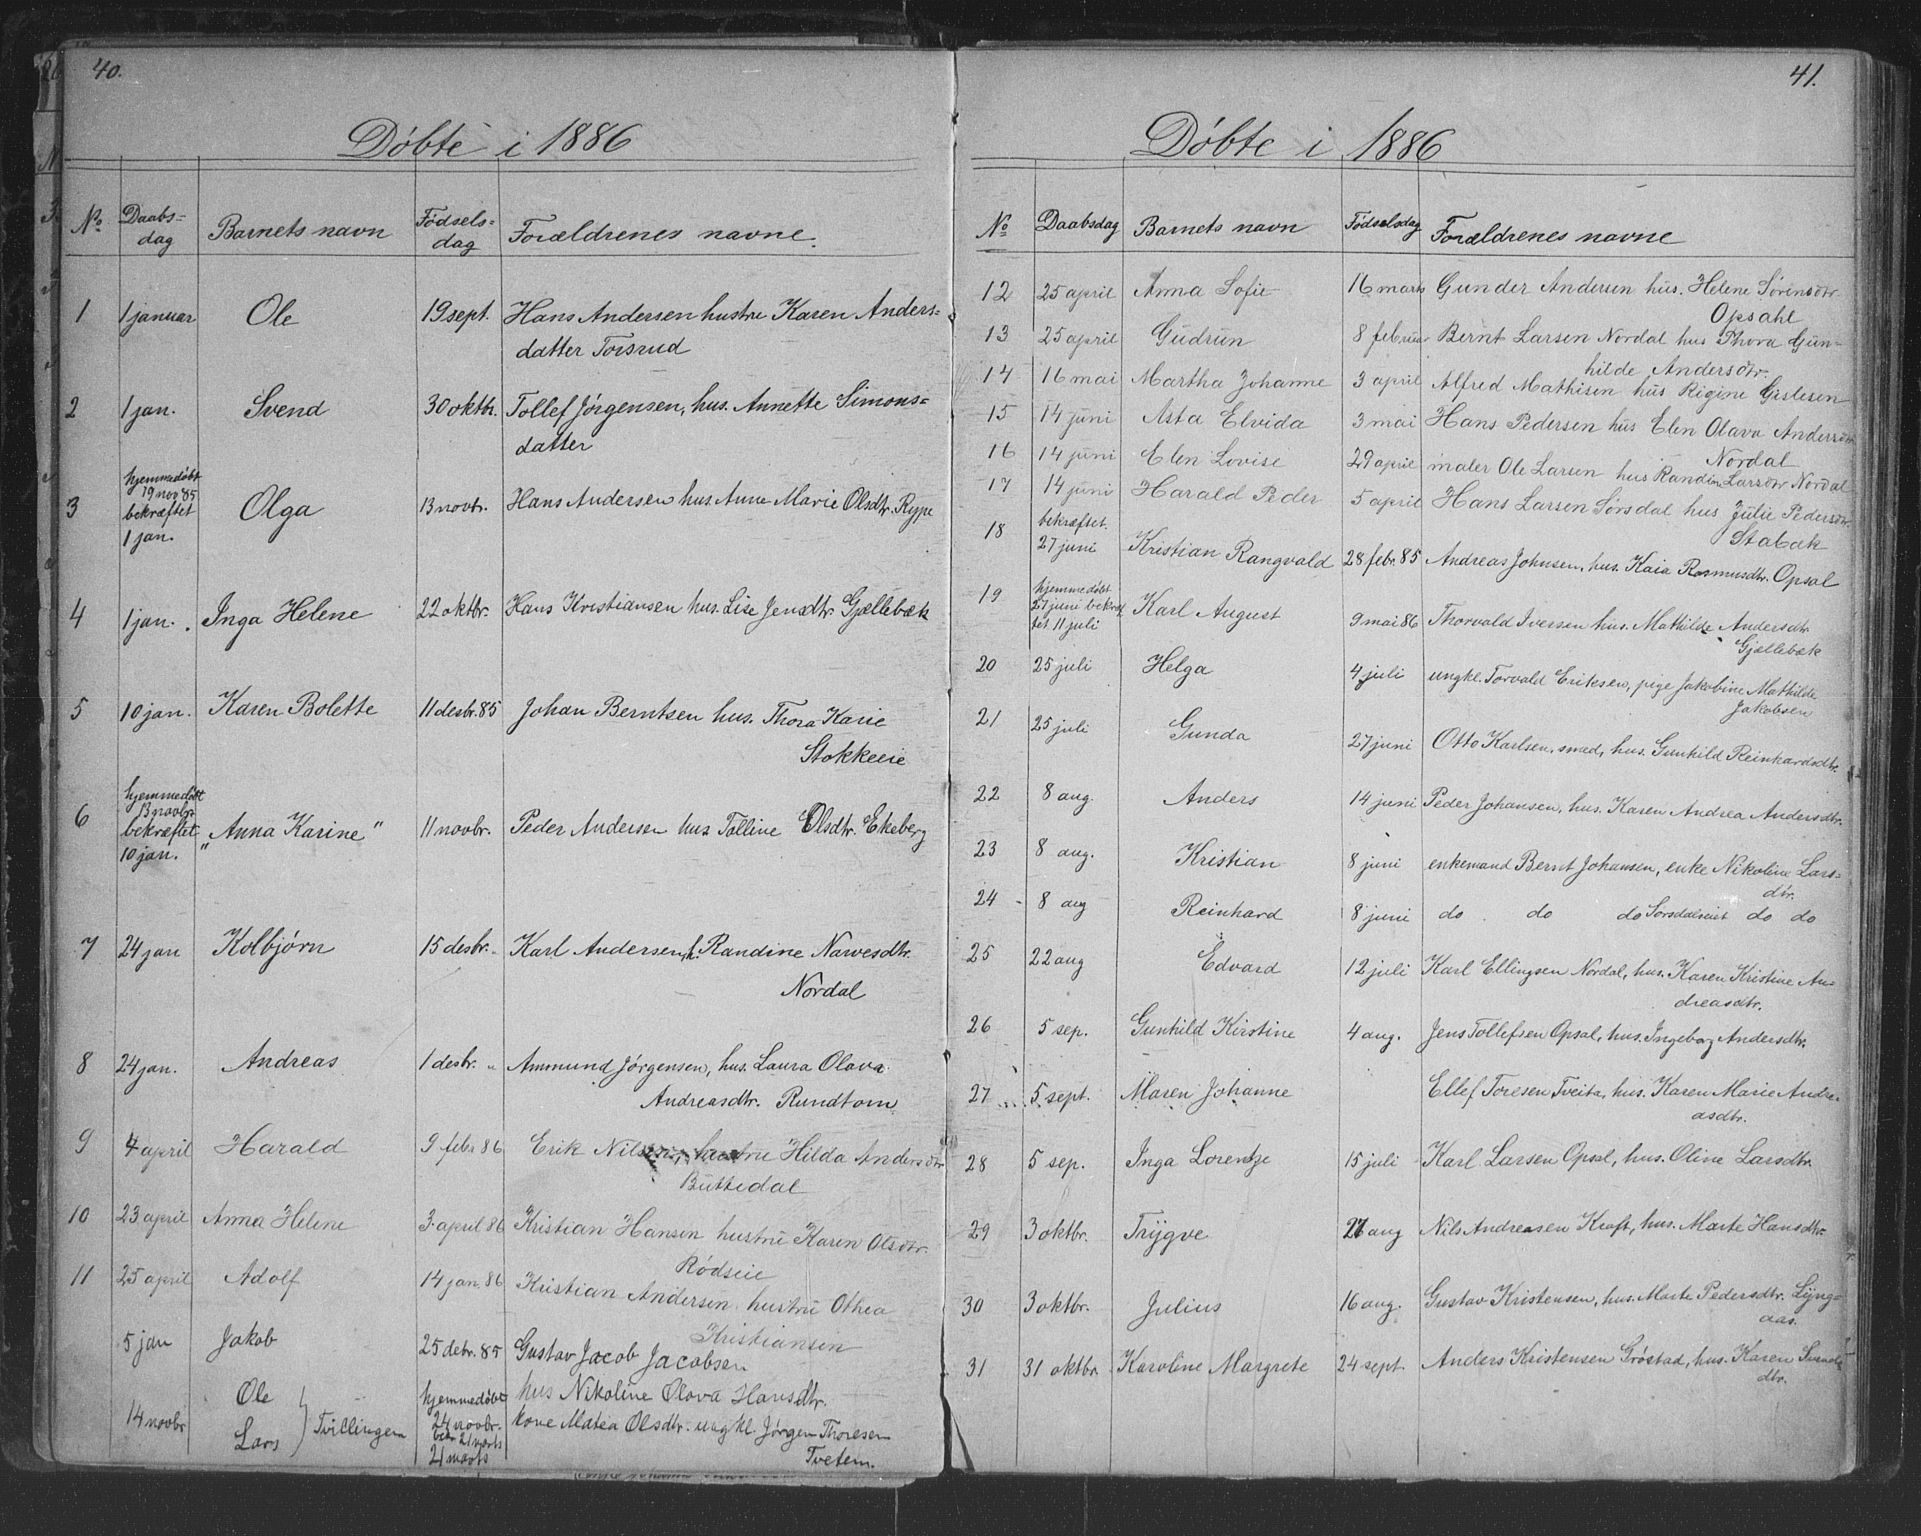 40.
Döbte i 1886
No Daabs=dag Barnets navn Födsels=dag Forældrenes navne.
1 1 januar Ole 19 sept. Hans Andersen hustru Karen Anders=
datter Torsrud
2 1 jan. Svend 30 oktbr. Tollef Jørgensen, hus. Annette Simons=
datter
hjemmedøbt
19 nov 85
3 bekræftet Olga 13 novbr. Hans Andersen hus. Anne Marie Olsdtr. Rype
1 jan.
4 1 jan. Inga Helene 22 oktbr. Hans Kristiansen hus. Lise Jensdtr Gjællebæk
5 10 jan. Karen Bolette 11 desbr. 85 Johan Berntsen hus. Thora Karie
Stokkeeie
hjemmedøbt
13 novbr.
6 bekræftet "Anna Karine" 11 novbr. Peder Andersen hus Tolline Olsdtr. Ekeberg
10 jan.
7 24 jan Kolbjørn 15 desbr. Karl Andersen, h. Randine Narvesdtr.
Nordal
8 24 jan. Andreas 1 desbr. " Ammund Jørgensen, hus. Laura Olava
Andreasdtr. Rundtom
9 4 april Harald 9 febr 86 Erik Nilsen, hustru Hilda Andersdtr
Buttedal
10 23 april Anna Helene 3. april 86 Kristian Hansen hustru Karen Olsdtr.
Rödseie
11 25 april Adolf 14 jan. 86 Kristian Andersen. hustru Othea
Kristiansen
5 jan Jakob 25 debr. 85 Gustav Jacob Jacobsen
hus Nikoline Olava Hansdtr.
14 novbr Ole Lars } Tvillinger hjemmedøbt kone Matea Olsdtr. ungkl. Jørgen Thoresen
24 novbr.
bekr 21 marts
21 marts Tvetem.
41.
Döbte i 1886
No Daabsdag Barnets navn Födselsdag Forældrenes navne
12 25 april Anna Sofie 16 marts Gunder Andersen hus. Helene Sörensdtr
Opsahl
13 25 april Gudrun 8 februar Bernt Larsen Nordal hus Thora Gun-
hilde Andersdtr.
14 16 mai Martha Johanne 3 april Alfred Mathisen hus Rigine Gislesen
15 14 juni Asta Elvida 3 mai Hans Pedersen hus Elen Olava Andersdtr
Nordal
16 14 juni Elen Lovise 29 april maler Ole Larsen hus Randine Larsdtr Nordal
17 14 juni Harald Peder 5 april Hans Larsen Sörsdal hus Julie Pedersdtr.
Stabæk
bekræftet.
18 27 juni Kristian Rangvald 28 febr. 85 Andreas Johnsen, hus. Kaia Rasmusdtr. Opsal
hjemmedøbt
19 27 juni bekræf Karl August 9 mai 86 Thorvald Iversen hus. Mathilde Andersdtr.
tet 11 juli Gjællebæk
20 25 juli Helga 4 juli ungkl. Torvald Eriksen, pige Jakobine Mathilde
Jakobsen
21 25 juli Gunda 27 juni Otto Karlsen, smed, hus. Gunhild Reinhardsdtr.
22 8 aug. Anders 14 juni Peder Johansen, hus. Karen Andrea Andersdtr.
23 8 aug. Kristian 8 juni enkemand Bernt Johansen, enke Nikoline Lars=
dtr.
24 8 aug Reinhard 8 juni do do do Sorsdalseiet do do
25 22 aug Edvard 12 juli Karl Ellingsen Nordal, hus. Karen Kristine An=
dreasdtr.
26 5 sep. Gunhild Kirstine 4 aug. Jens Tollefsen Opsal, hus. Ingeborg Andersdtr.
27 5 sept. Maren Johanne Ellef Toresen Tveita, hus. Karen Marie Andre-
asdtr.
28 5 sep. Inga Lorentze 15 juli Karl Larsen Opsal, hus. Oline Larsdtr.
29 3 oktbr. Trygve 27 aug Nils Andreasen Kraft, hus. Marte Hansdtr.
30 3 oktbr. Julius 16 aug. Gustav Kristensen, hus. Marte Pedersdtr. Lyng=
aas.
31 31 oktbr. Karoline Margrete 24 sept. Anders Kristensen Gröstad, hus. Karen
dtr.